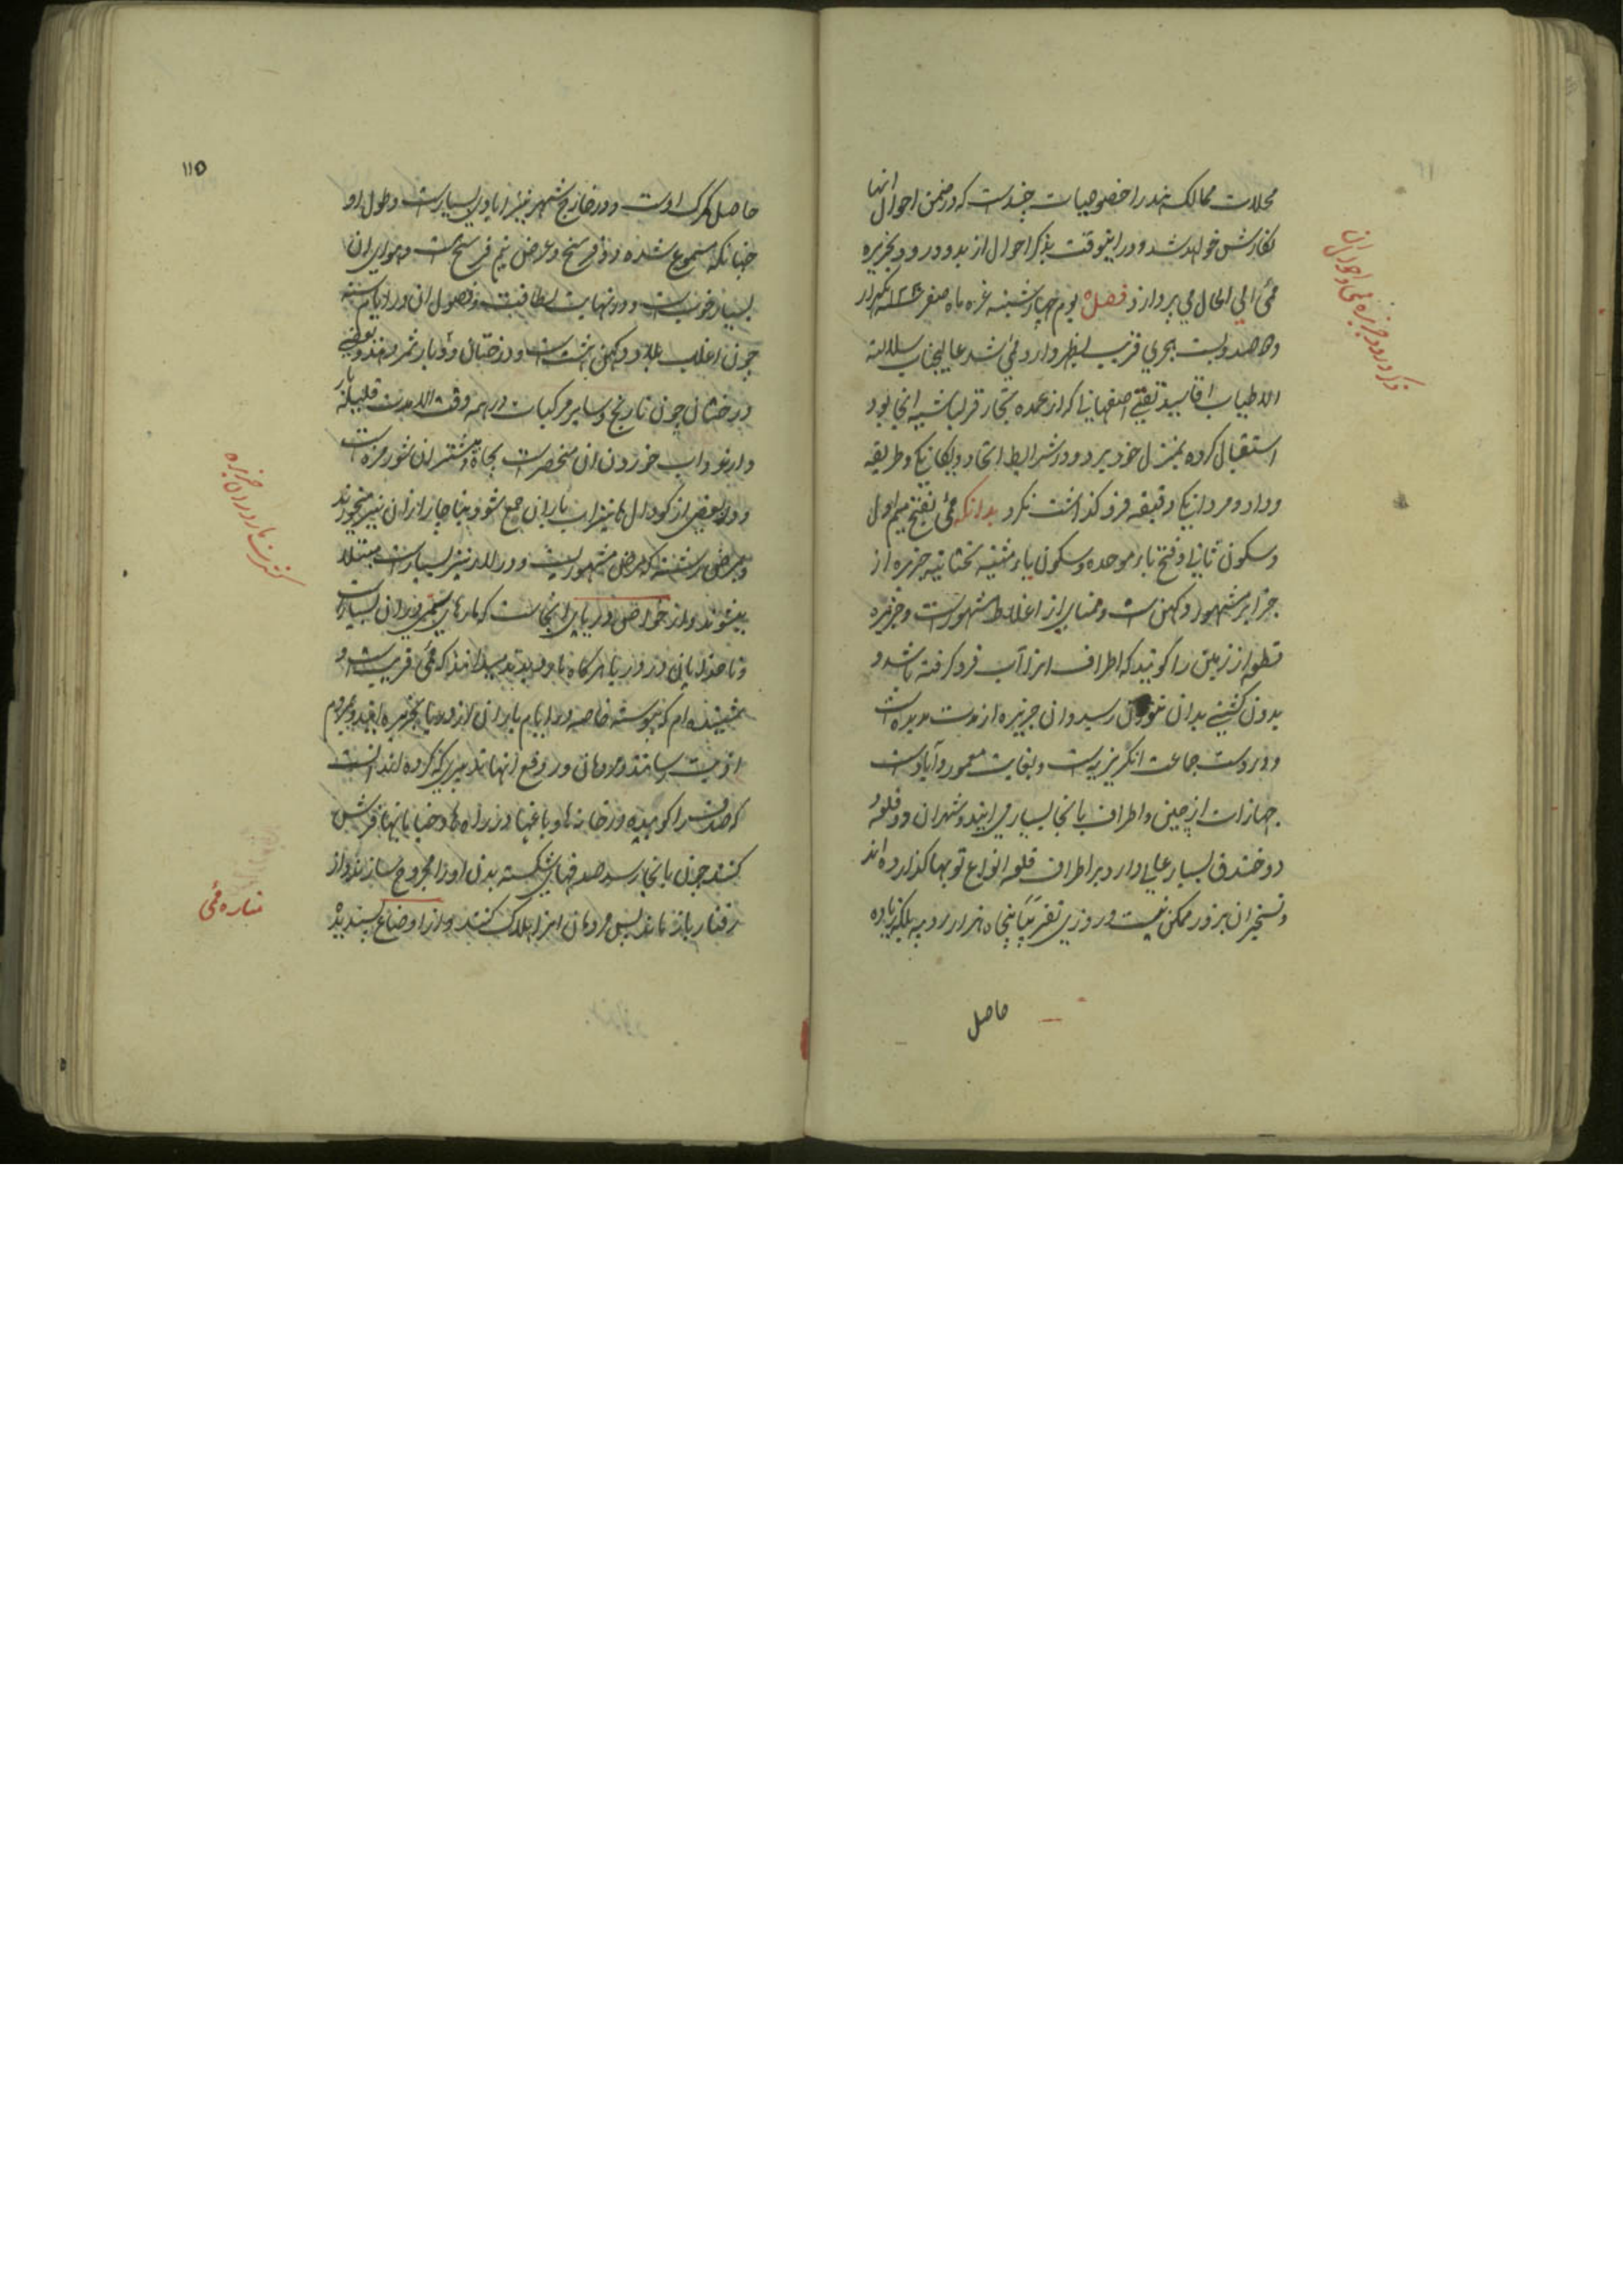 محلات ممالک هند را خصوصیات چندست که در ضمن احوال انها
نکارش خواهد شد و در اینوقت بذکر احوال از بدو ورود بجزیره
ممبئی الی الحال می پردازد فصل یوم چهارشنبه غره ماه صفر یکهزار
و دوصد و بیست هجری قریب بظهر وارد ممبئی شد عالیجناب سلالة
الاطیاب اقا سید تقی اصفهانی که از عمده تجار قزلباشیه انجا بود
استقبال کرده بمنزل خود برد و در شرایط اتحاد و یکانکی و طریقه
وداد و مردانکی دقیقه فرو گذاشت نکرد بدانکه ممبئی بفتح میم اول
و سکون ثانی و فتح باء موحده و سکون یاء مثناه تحتانیه جزیره از
جزایر مشهور دکهن است و منبای از اغلاط مشهورست و جزیره
قطعه از زمین را گویند که اطراف انرا آب فرو کرفته باشد و
بدون کشتی بدان نتوان رسید و ان جزیره از مدت مدیده است
در دست جماعت انکریزیه است و بغایت معمور و آبادست
جهازات از چین و اطراف بانجا بسیار می ایند و شهر ان دو قلعه و
دو خندق بسیار عالی دارد بر اطراف قلعه انواع توبها کذارده اند
و تسخیر ان بزور ممکن نیست و روزی تقریباً پنجاه هزار روپیه بلکه زیاده
حاصل
ذکر ورود جزیره ممبئی و احوال ان
۱۱۵
حاصل کمرک اوست و در خارج شهر نیز ابادی بسیارست و طول او
چنانکه مسموع شده دو فرسخ و عرض نیم فرسخ است و هوای ان
بسیار خوبست و در نهایت لطافت و فصول ان در ایام سنه
چون اغلب بلاد دکهن است و درختان دو بار ثمر دهند و بعضی
درختان چون نارنج و سایر مرکبات در همه وقت الا مدت قلیله بار
دارند و اب خوردن ان منحصرست بچاه و بیشتر ان شور مزه است
و در بعضی از کودال ها نیز اب باران جمع شود بناچار از ان نیز میخورند
و بمرض رشته که مرض مشهوریست و در لار نیز بسیارست مبتلا
میشوند و از خواص دریای انجاست که مارهای سمی در ان بسیارست
و ناخدایان در دریا هر کاه مار دیدند میدانند که ممبئی قریب است و
شنیده ام که پیوسته خاصه در ایام باران از دریا بجزیره ایند و بمردم
اذیت رسانند و مردمان در دفع انها تدبیری که کرده اند انست
که صدف را کوبیده در خانها و باغها و در راه ها و خیابانها فرش
کنند چون بانجا رسد صدفهای شکسته بدن او را مجروح سازند و از
رفتار باز ماند پس مردمان انرا هلاک کنند و از اوضاع پسندیده
کثرت مار در ان جزیره
مناره ممبئی